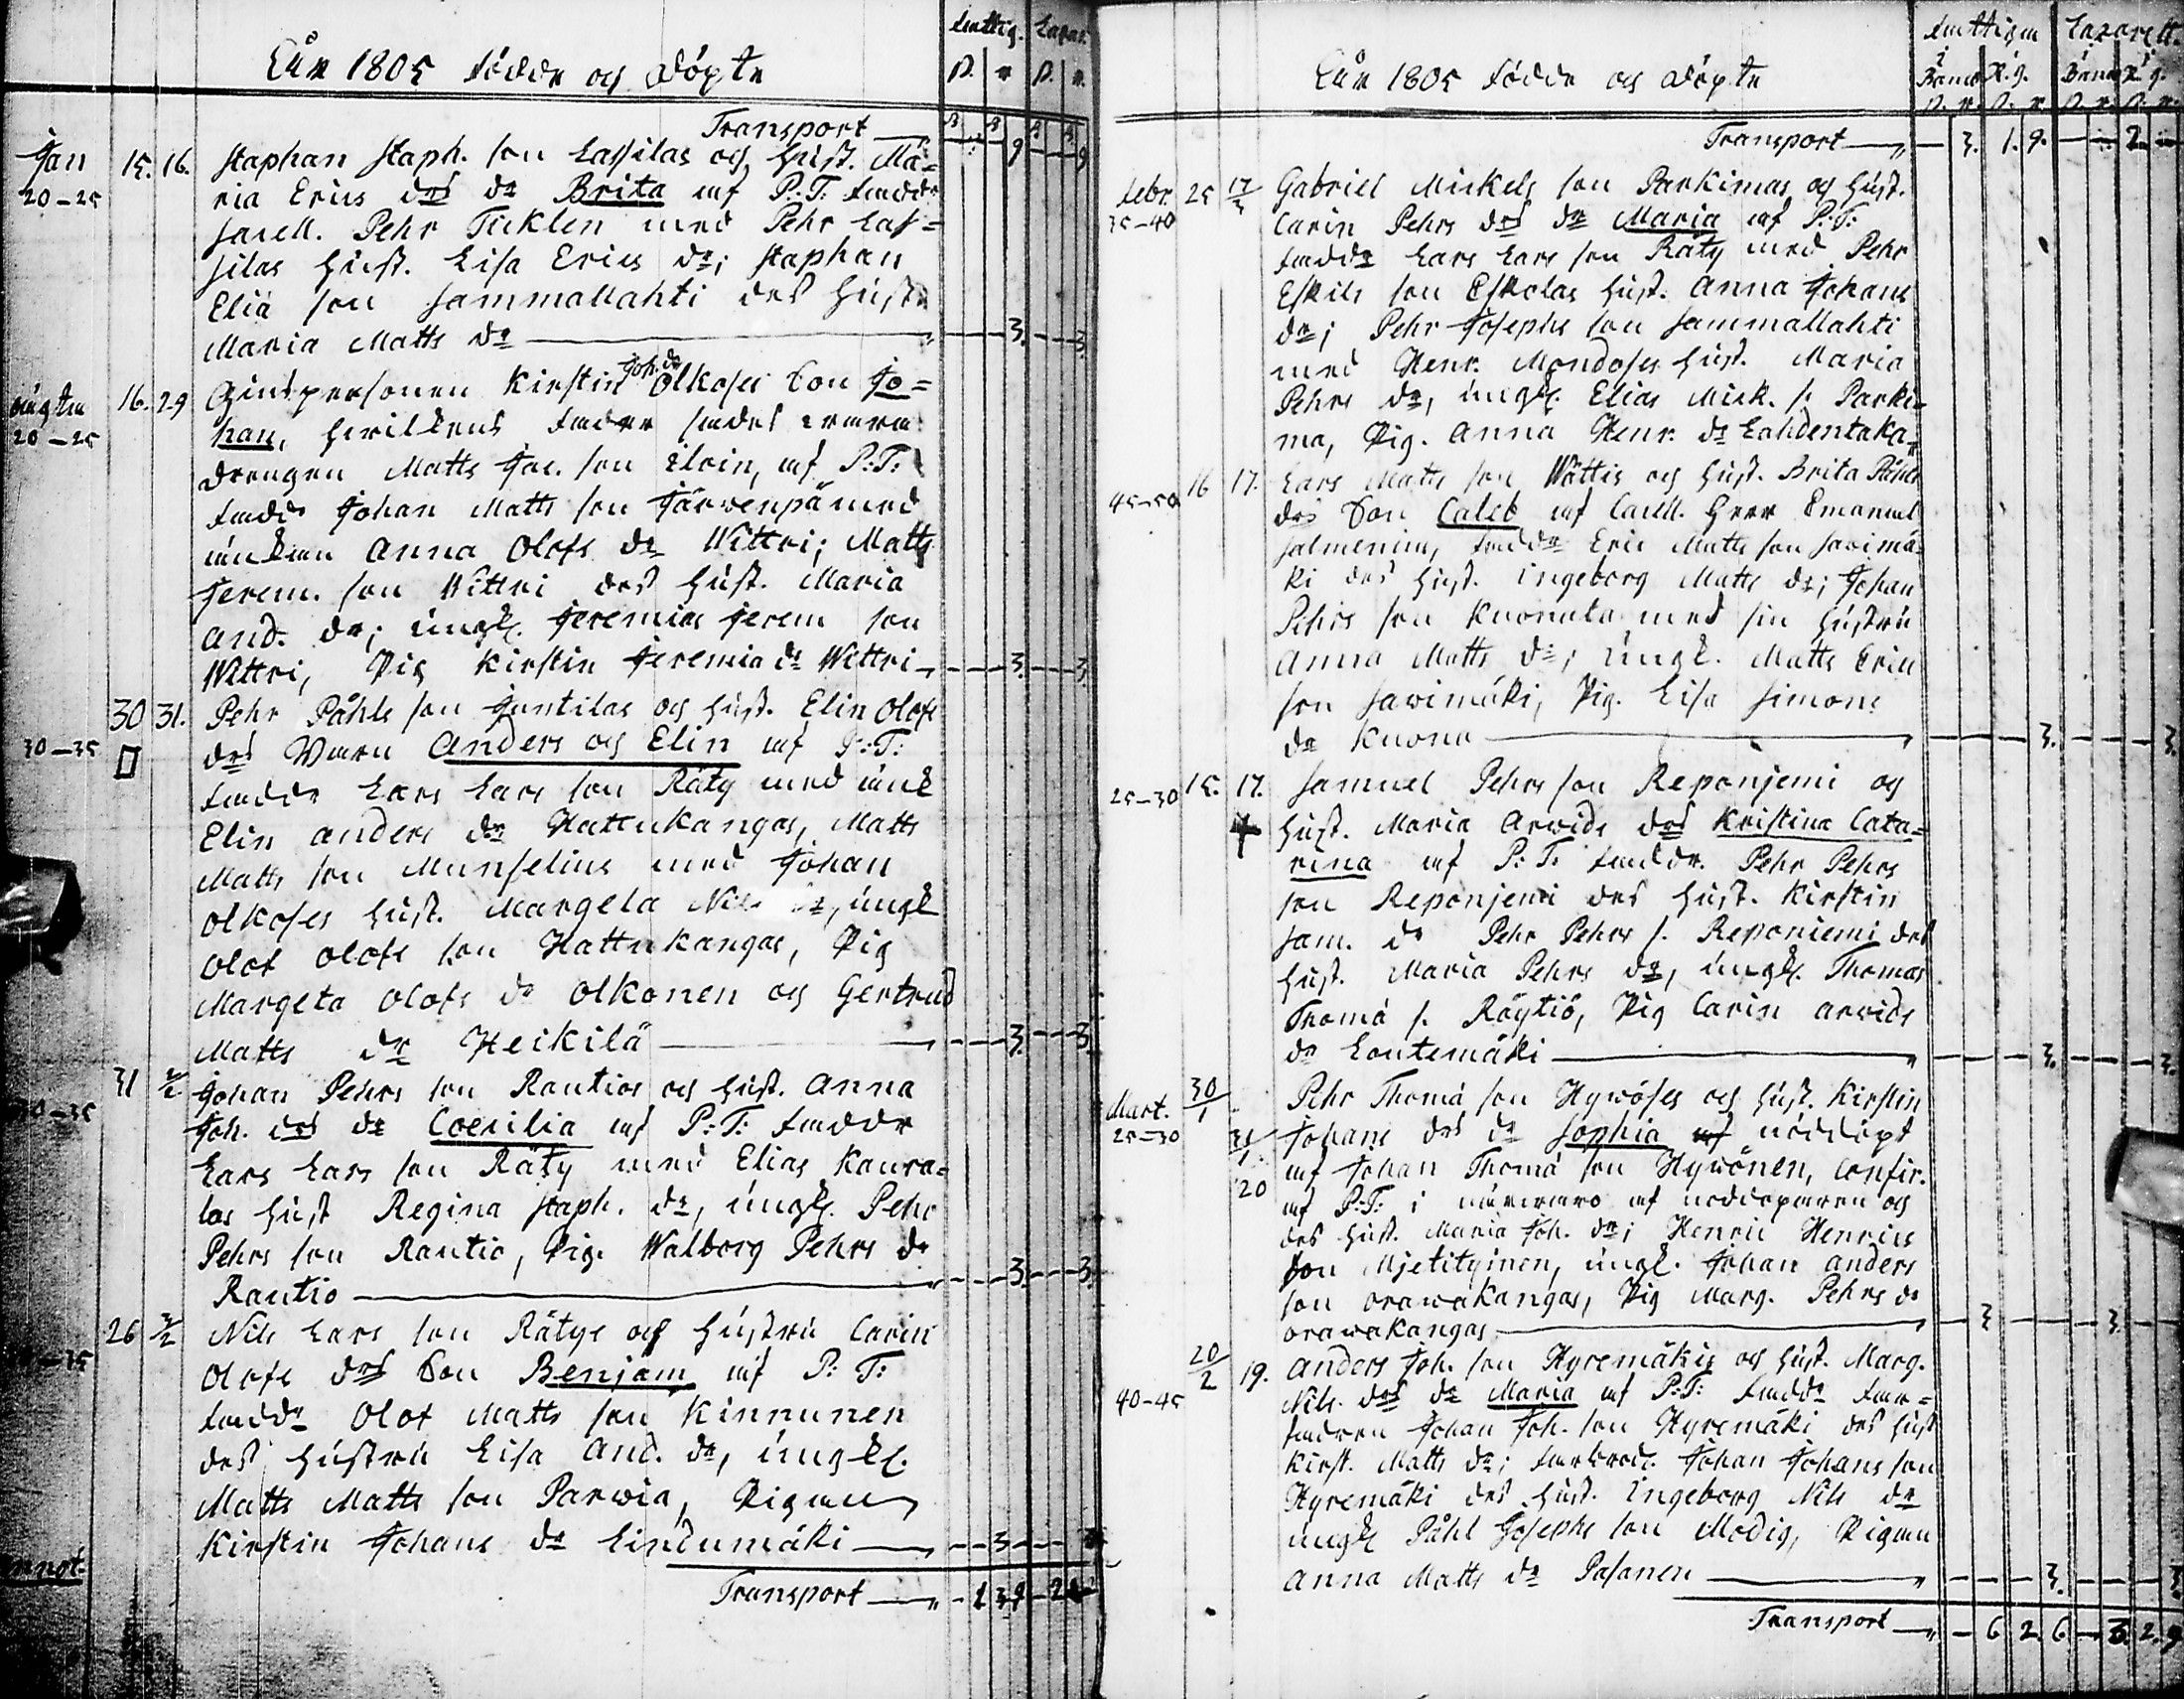 Åhr 1805 födde och döpte
Fattig. Lazar.
Transport 9 9
Jan 15. 16. Staphan Staph. son Lassilas och Hust. Ma=
20-25 ria Erics des dr Brita af P:T: fadde
Sacell. Pehr Ticklen med Pehr Las=
silas Hust. Lisa Erics dr; Staphan
Eliæ son Sammallahti des Hust.
Maria Matts dr 3. 3.
16. 29 Qinspersonen Kirstin Joh. dr Olkoses Son Jo=
20-25 han, hvilkens fader sades wara
drengen Matts Jac. son af P:T:
fadd. Johan Matts son Järwenpä med
änkan Anna Olofs dr Wittri; Matts
Jerem. son Wittri des Hust. Maria
And. dr; ungk. Jeremias Jerem son
Wittri, Pig Kirstin Jeremiæ dr Wittri 3. 3.
30 31. Pehr Påhls son Juntilas och Hust. Elin Olofs
30-35 des Barn Anders och Elin af P:T:
fadde Lars Lars son Räty med änk
Elin Anders dr Hattukangas, Matts
Matts son Munselius med Johan
Olkoses Hust. Margeta Nils dr, ungk
Olof Olofs son Hattukangas, Pig
Margeta Olofs dr Olkonen och Gertrud
Matts dr Heikilä 3. 3.
31 2/2 Johan Pehrs son Rautios och Hust. Anna
30-35 Joh. des dr Coecilia af P:T: fadde
Lars Lars son Räty med Elias Kaura=
las Hust Regina Staph. dr, ungk. Pehr
Pehrs son Rautio, Pig. Walborg Pehrs dr
Rautio 3. 3.
26 3/2 Nils Lars son Rätys och Hustru Carin
Olofs des Son Benjam af P:T:
fadde Olof Matts son Kinnunen
des Hustru Lisa And. dr, ungk.
Matts Matts son Parwia, Pigan
Kirstin Johans dr Lindumäki 3
Transport
Åhr 1805 födde och döpte
Fattigm Lazarett.
Transport 3. 1. 9. 2.
Febr. 25 17/3 Gabriel Mickels son Parkimas och Hust.
35-40 Carin Pehrs des dr Maria af P:T:
fadde Lars Lars son Räty med Pehr
Eskils son Eskolas Hust. Anna Johans
dr; Pehr Josephs son Sammallahti
med Henr. Mondoses Hust. Maria
Pehrs dr, ungk. Elias Mick. s. Parki=
ma, Pig. Anna Henr. dr Lahdentaka
45-50 16 17. Lars Matts son Wättis och Hust. Brita Påhls
des Son Caleb af Cacell. Herr Emanuel
Salmenius, fadde Eric Matts son Sawimä=
ki des Hust. Ingeborg Matts dr; Johan
Pehrs son Kuonula med sin Hustru
Anna Matts dr; ungk. Matts Erics
son Sawimäki, Pig. Lisa Simons
dr Kuona 3. 3.
25-30 15. 17. Samuel Pehrs son Reponjemi och
Hust. Maria Arwids des Kristina Cata=
rina af P:T: fadde. Pehr Pehrs
son Reponjemi des Hust. Kirstin
Sam. dr Pehr Pehrs s. Reponiemi des
Hust. Maria Pehrs dr, ungk. Thomas
Thomæ s. Räytiö, Pig Carin Arwids
dr Loutemäki 3. 3.
Mart. 30/1 Pehr Thomæ son Hywöses och Hust. Kirstin
25-30 31/1 Johans des dr Sophia af nöddöpt
20 af Johan Thomæ son Hywönen, Confir.
af P:T: i närwaro af nöddöparen och
des Hust. Maria Joh. dr; Henric Henrics
son Mjetityinen, ungk. Johan Anders
son Orawakangas, Pig Marg. Pehrs dr
Orawakangas 3 3.
20/2 19. Anders Joh. son Hyremäkis och Hust. Marg.
40-45 Nils. des dr Maria af P:T: fadde far=
fadren Johan Joh. son Hyremäki des Hust
Kirst. Matts dr; farbrod. Johan Johans son
Hyremäki des Hust. Ingeborg Nils dr
ungk Påhl Josephs son Modig, Pigan
Anna Matts dr Pasanen 3. 3
Transport 6 2. 6.